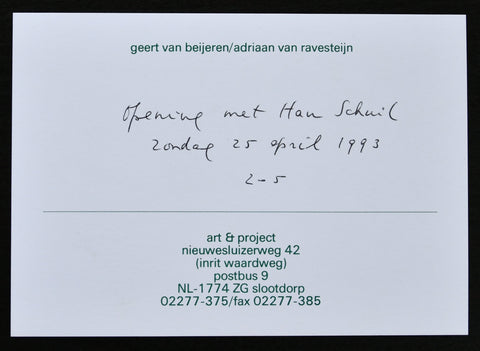 geert van beijeren/adriaan van ravesteijn
Opening met Han Schuil
zondag 25 april 1993
2-5
art & project
nieuwesluizerweg 42
(inrit waardweg)
postbus 9
NL-1774 ZG slootdorp
02277-375/fax 02277-385